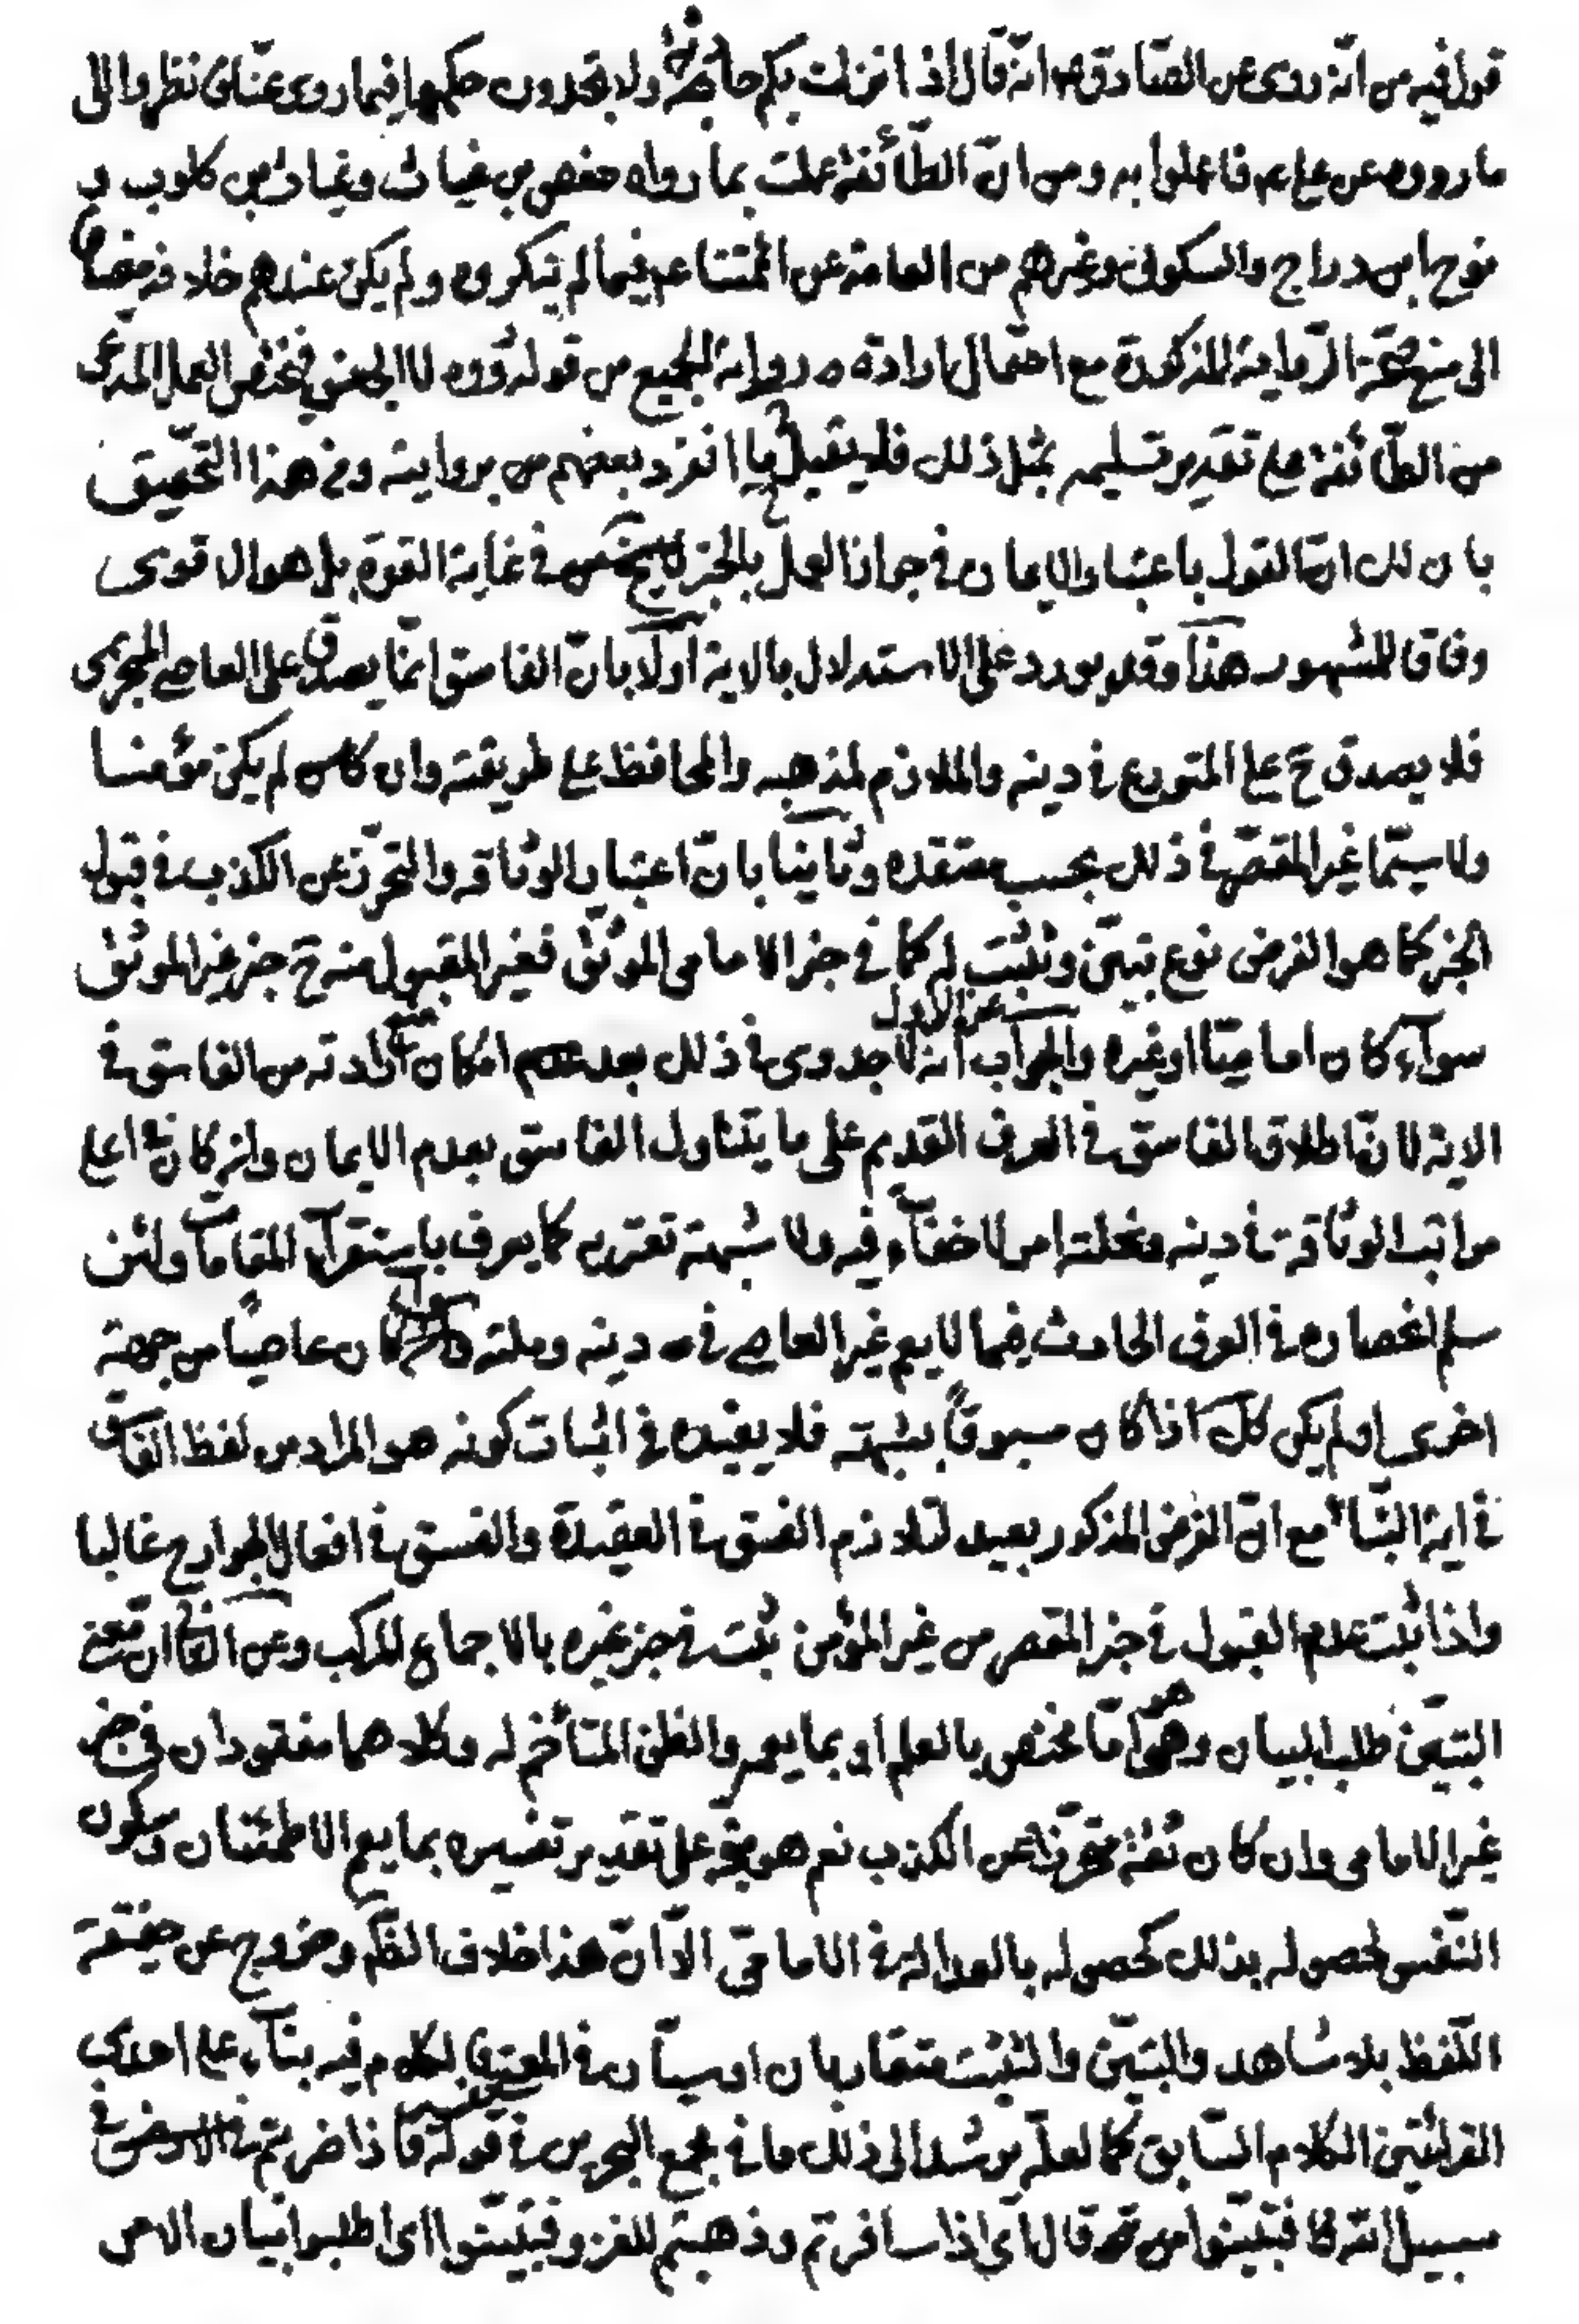 قوله فيه من انّه روى عن الصّادق ع انّه قال اذا نزلت بكم حادثة ولا تجدون حكمها فيما روى عنّا فانظروا الى
ما رووه عن على ع فاعملوا به ومن انّ الطّائفة عملت بما رواه حفص بن غياث وغياث بن كلوب و
نوح بن دراج والسكونى وغيرهم من العامة عن ائمتنا ع فيما لم ينكروه ولم يكن عندهم خلافه مضافا
الى منع صحّة الرّواية المذكورة مع احتمال ارادة رواية الجميع من قوله رووه لا البعض فيختص العمل المدّعى
من الطّائفة على تقدير تسليمه بمثل ذلك فلا يقبل ما انفرد بعضهم من بروايته وفى هذا التحقيق
بان لك ان القول باعتبار الايمان فى جواز العمل بالخبر فى غاية القوة بل هو الاقوى
وفاقا للمشهور هذا وقد يورد على الاستدلال بالاية اولا بانّ الفاسق انّما يصدق على العاصى
فلا يصدق ح على المتورع فى دينه والملازم لمذهبه والمحافظ على طريقته وان كان لم يكن مؤمنا
ولا سيّما غير المقصّر فى ذلك بحسب معتقده وثانيا بانّ اعتبار الوثاقه والتحرّز عن الكذب فى قبول
الخبر كما هو الفرض نوع تبيّن وتثبّت له كما فى خبر الامامى الموثّق فغير المقبول منه ح خبر غير الموثق
سواء كان اماميّا او غيره والجواب عن الاول انه لا جدوى فى ذلك بعد عدم امكان ارادته من الفاسق فى
الاية لانّ اطلاق الفاسق فى العرف القديم على ما يتناول الفاسق بعدم الايمان وان كان فى اعلى
مراتب الوثاقة فى دينه ونحلته امر لا خفاء فيه ولا شبهة تعتريه كما يعرف باستقراء المقامات ولئن
سلم انحصاره فى العرف الحادث فيما لا يعم غير العاصى فى دينه وملته سواء كان عاصيا من جهة
اخرى او لم يكن كك اذا كان مسبوقا بشبهة فلا يفيده فى اثبات كونه هو المراد من لفظ الفاسق
فى اية النبأ مع انّ الفرض المذكور بعيد لتلازم الفسق فى العقيدة والفسق فى افعال الجوارح غالبا
واذا ثبت عدم القبول فى خبر المقصر من غير المؤمن ثبت فى خبر غيره بالاجماع المركب وعن الثانى ان معنى
التبيّن طلب البيان وهو امّا مختص بالعلم او بما يعمه والظن المتاخم له وكلاهما مفقودان فى خبر
غير الامامى وان كان ثقة متحرّزا عن الكذب نعم هو متجه على تقدير تفسيره بما يعم الاطمئنان وسكون
النّفس لحصوله بذلك كحصوله بالعدالة فى الامامىّ الّا انّ هذا خلاف الظّهر وخروج عن حقيقة
اللّفظ بلا شاهد والتبيّن والتثبّت متقاربان او سيّان فى المعنى فالكلام فيه بناء على احدى
القرائتين الكلام السّابق كما لعلّه يرشد الى ذلك ما فى مجمع البحرين فى تفسير قوله فاذا ضربتم فى
سبيل الله فتبيّنوا من قال اى اذا سافرتم وذهبتم للغزو فتبيّنوا اى اطلبوا بيان الامر